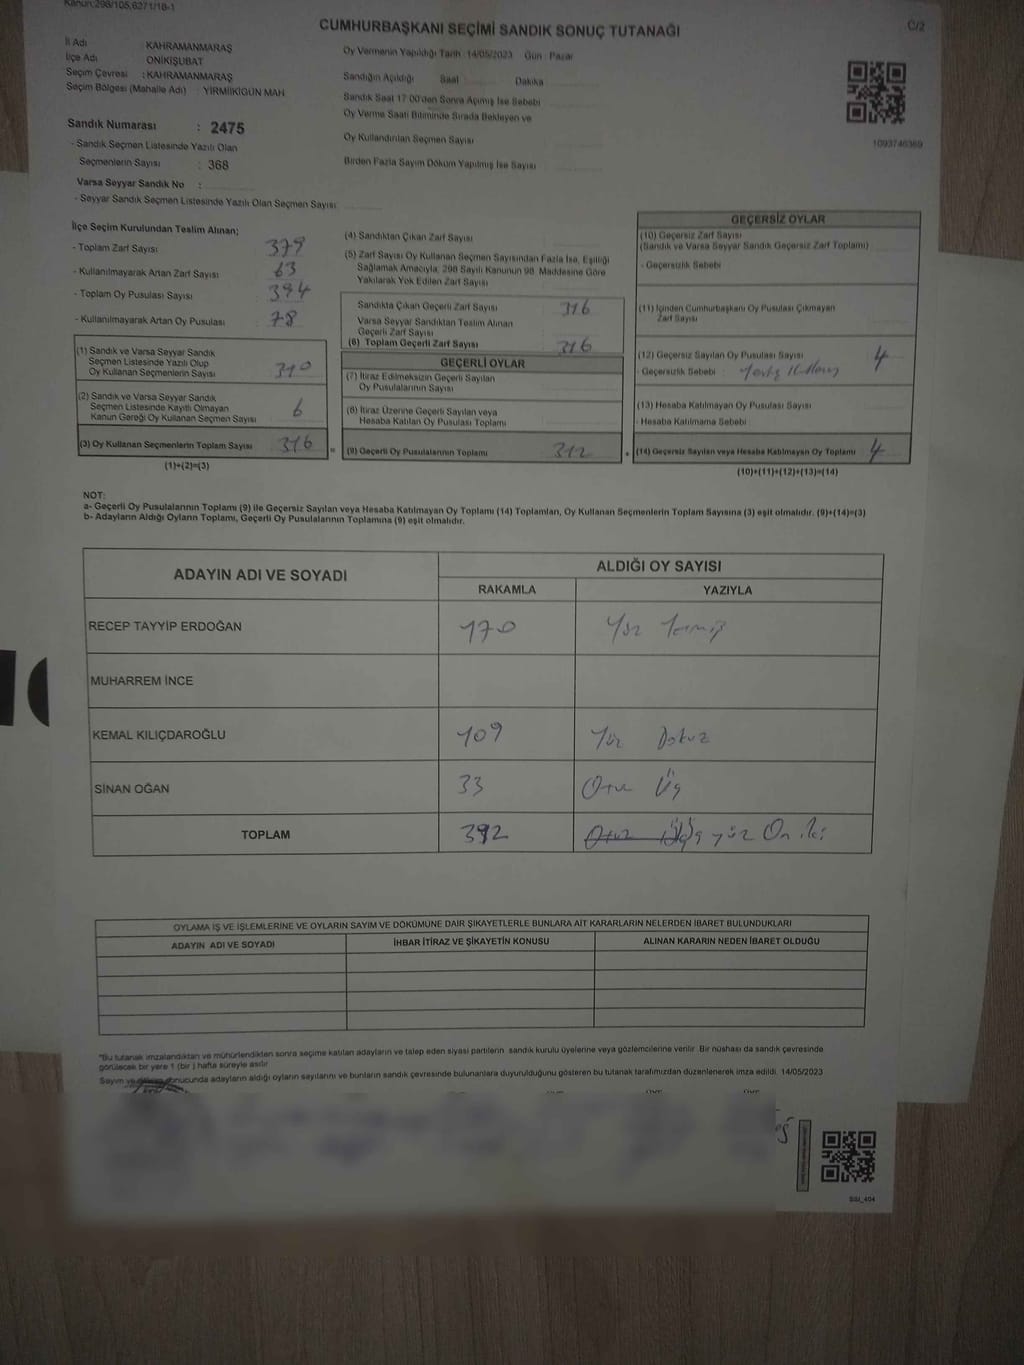 Kanun:298/105,6271/18-1
CUMHURBAŞKANI SEÇİMİ SANDIK SONUÇ TUTANAĞI
C/2
İl Adı : KAHRAMANMARAŞ
İlçe Adı ONİKİŞUBAT
Seçim Çevresi : KAHRAMANMARAŞ
Seçim Bölgesi (Mahalle Adı) : YİRMİİKİGÜN MAH
Sandık Numarası : 2475
- Sandık Seçmen Listesinde Yazılı Olan
Seçmenlerin Sayısı : 368
Varsa Seyyar Sandık No :
- Seyyar Sandık Seçmen Listesinde Yazılı Olan Seçmen Sayısı
Oy Vermenin Yapıldığı Tarih : 14/05/2023 Gün : Pazar
Sandığın Açıldığı Saat Dakika
Sandık Saat 17:00'den Sonra Açımış İse Sebebi
Oy Verme Saati Bitiminde Sırada Bekleyen ve
Oy Kullandırılan Seçmen Sayısı
Birden Fazla Sayım Döküm Yapılmış İse Sayısı
1093746369
İlçe Seçim Kurulundan Teslim Alınan;
- Toplam Zarf Sayısı 379
- Kullanılmayarak Artan Zarf Sayısı 63
- Toplam Oy Pusulası Sayısı 394
- Kullanılmayarak Artan Oy Pusulası 78
(1) Sandık ve Varsa Seyyar Sandık
Seçmen Listesinde Yazılı Olup
Oy Kullanan Seçmenlerin Sayısı 310
(2) Sandık ve Varsa Seyyar Sandık
Seçmen Listesinde Kayıtlı Olmayan
Kanun Gereği Oy Kullanan Seçmen Sayısı 6
(3) Oy Kullanan Seçmenlerin Toplam Sayısı 316
(1)+(2)=(3)
(4) Sandıktan Çıkan Zarf Sayısı
(5) Zarf Sayısı Oy Kullanan Seçmen Sayısından Fazla İse, Eşitliği
Sağlamak Amacıyla, 298 Sayılı Kanunun 98. Maddesine Göre
Yakılarak Yok Edilen Zarf Sayısı
Sandıkta Çıkan Geçerli Zarf Sayısı 316
Varsa Seyyar Sandıktan Teslim Alınan
Geçerli Zarf Sayısı
(6) Toplam Geçerli Zarf Sayısı 316
GEÇERLİ OYLAR
(7) İtiraz Edilmeksizin Geçerli Sayılan
Oy Pusulalarının Sayısı
(8) İtiraz Üzerine Geçerli Sayılan veya
Hesaba Katılan Oy Pusulası Toplamı
= (9) Geçerli Oy Pusulalarının Toplamı 312
GEÇERSİZ OYLAR
(10) Geçersiz Zarf Sayısı
(Sandık ve Varsa Seyyar Sandık Geçersiz Zarf Toplamı)
- Geçersizlik Sebebi
(11) İçinden Cumhurbaşkanı Oy Pusulası Çıkmayan
Zarf Sayısı
(12) Geçersiz Sayılan Oy Pusulası Sayısı 4
- Geçersizlik Sebebi :
(13) Hesaba Katılmayan Oy Pusulası Sayısı
- Hesaba Katılmama Sebebi
+ (14) Geçersiz Sayılan veya Hesaba Katılmayan Oy Toplamı 4
(10)+(11)+(12)+(13)=(14)
NOT:
a- Geçerli Oy Pusulalarının Toplamı (9) ile Geçersiz Sayılan veya Hesaba Katılmayan Oy Toplamı (14) Toplamları, Oy Kullanan Seçmenlerin Toplam Sayısına (3) eşit olmalıdır. (9)+(14)=(3)
b- Adayların Aldığı Oyların Toplamı, Geçerli Oy Pusulalarının Toplamına (9) eşit olmalıdır.
ADAYIN ADI VE SOYADI ALDIĞI OY SAYISI
RAKAMLA YAZIYLA
RECEP TAYYİP ERDOĞAN 170 Yüz Yetmiş
MUHARREM İNCE
KEMAL KILIÇDAROĞLU 109 Yüz Dokuz
SİNAN OĞAN 33 Otuz Üç
TOPLAM 312 Otuz Üç Üç yüz On iki
OYLAMA İŞ VE İŞLEMLERİNE VE OYLARIN SAYIM VE DÖKÜMÜNE DAİR ŞİKAYETLERLE BUNLARA AİT KARARLARIN NELERDEN İBARET BULUNDUKLARI
ADAYIN ADI VE SOYADI İHBAR İTİRAZ VE ŞİKAYETİN KONUSU ALINAN KARARIN NEDEN İBARET OLDUĞU
"Bu tutanak imzalandıktan ve mühürlendikten sonra seçime katılan adayların ve talep eden siyasi partilerin sandık kurulu üyelerine veya gözlemcilerine verilir. Bir nüshası da sandık çevresinde
görülecek bir yere 1 (bir) hafta süreyle asılır
Sayım ve döküm sonucunda adayların aldığı oyların sayılarını ve bunların sandık çevresinde bulunanlara duyurulduğunu gösteren bu tutanak tarafımızdan düzenlenerek imza edildi. 14/05/2023